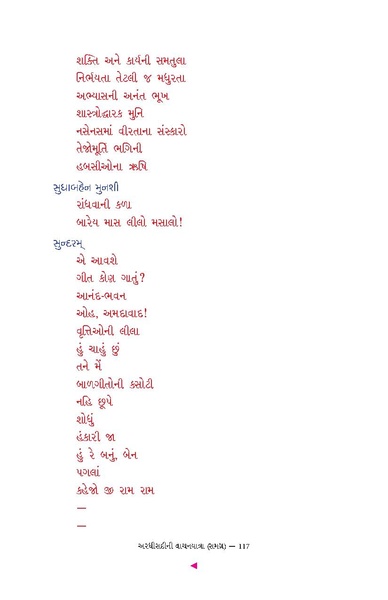 શક્તિ અને કાર્યની સમતુલા
નિર્ભયતા તેટલી જ મધુરતા
અભ્યાસની અનંત ભૂખ
શાસ્ત્રોદ્ધારક મુનિ
નસેનસમાં વીરતાના સંસ્કારો
તેજોમૂર્તિ ભગિની
હબસીઓના ઋષિ
સુધાબહેન મુનશી
રાંધવાની કળા
બારેય માસ લીલો મસાલો!
સુન્દરમ્
એ આવશે
ગીત કોણ ગાતું?
આનંદ-ભવન
ઓહ, અમદાવાદ!
વૃત્તિઓની લીલા
હું ચાહું છું
તને મેં
બાળગીતોની કસોટી
નહિ છૂપે
શોધું
હંકારી જા
હું રે બનું, બેન
પગલાં
ક્હેજો જી રામ રામ
—
—
અરધીસદીની વાચનયાત્રા (સમગ્ર) — 117